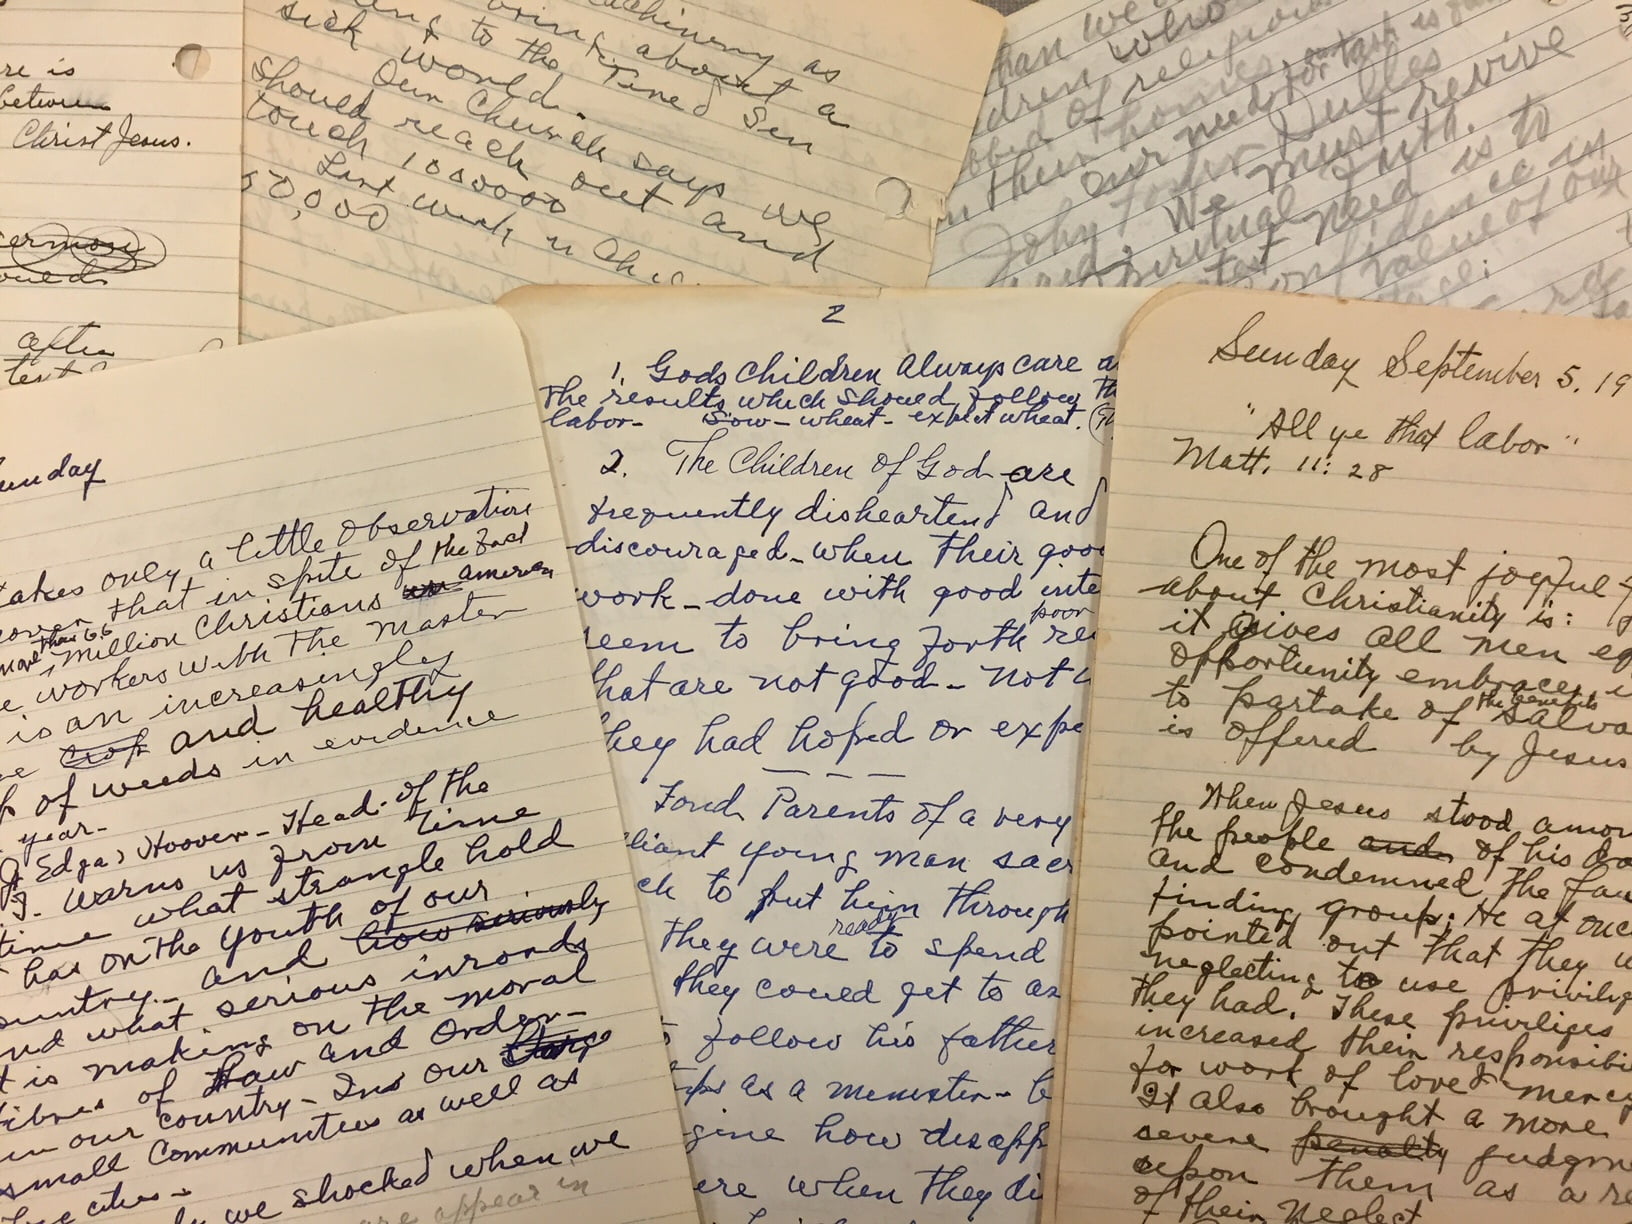 re is
between
Christ Jesus.
sermon
after
text
machinery as
bring about a
to the Tired Sin
sick world.
Our Church says we
should reach out and
touch 1000000
Last week in Chic
50,000
than we
dren who
bbed of religious
in their homes
our need for task is
John Foster Dulles
We must revive
spiritual Faith.
need is to
confidence in
value of our
Sunday
takes only a little observation
cover that in spite of the fact
more than 66 million Christians in america
workers with the Master
is an increasingly
crop and healthy
of weeds in evidence
year-
J. Edgar Hoover - Head of the
I. warns us from time
time what strangle hold
has on the youth of our
country - and how seriously
and what serious inroads
it is making on the moral
fibres of Law and Order-
in our country - In our large
small communities as well as
cities -
we shocked when we
appear in
2
1. Gods Children Always care a
the results which should follow th
labor- Sow - wheat - expect wheat. (Th
2. The Children of God are
frequently disheartened and
discouraged - when their goo
work - done with good inte
seem to bring forth poor re
that are not good - Not w
they had hoped or expe
Fond Parents of a very
liant young man sacr
ck to put him through
they were ready to spend
they could get to
follow his father
as a minister - to
gine how disapp
ere when they di
Sunday September 5, 19
"All ye that labor"
Matt. 11:28
One of the most joyful
about Christianity is:
it gives all men eq
opportunity embraces
to partake of the benefits Salva
is offered by Jesus
When Jesus stood amon
the people and of his da
and condemned the fau
finding group; He at onc
pointed out that they w
neglecting to use privileg
they had. These priviliges
increased their responsibi
for work of love & mercy
It also brought a more
severe penalty judgme
upon them as a re
of their Neglect